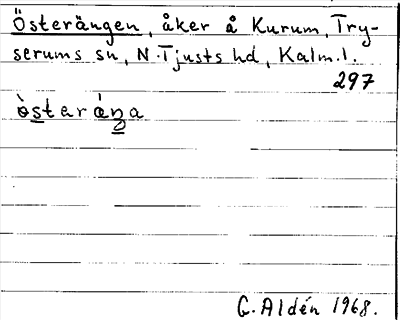 Österängen, åker å Kurum, Try-
serums sn, N. Tjusts hd, Kalm. l.
297
ò̀sterǽŋa
G. Aldén 1968.